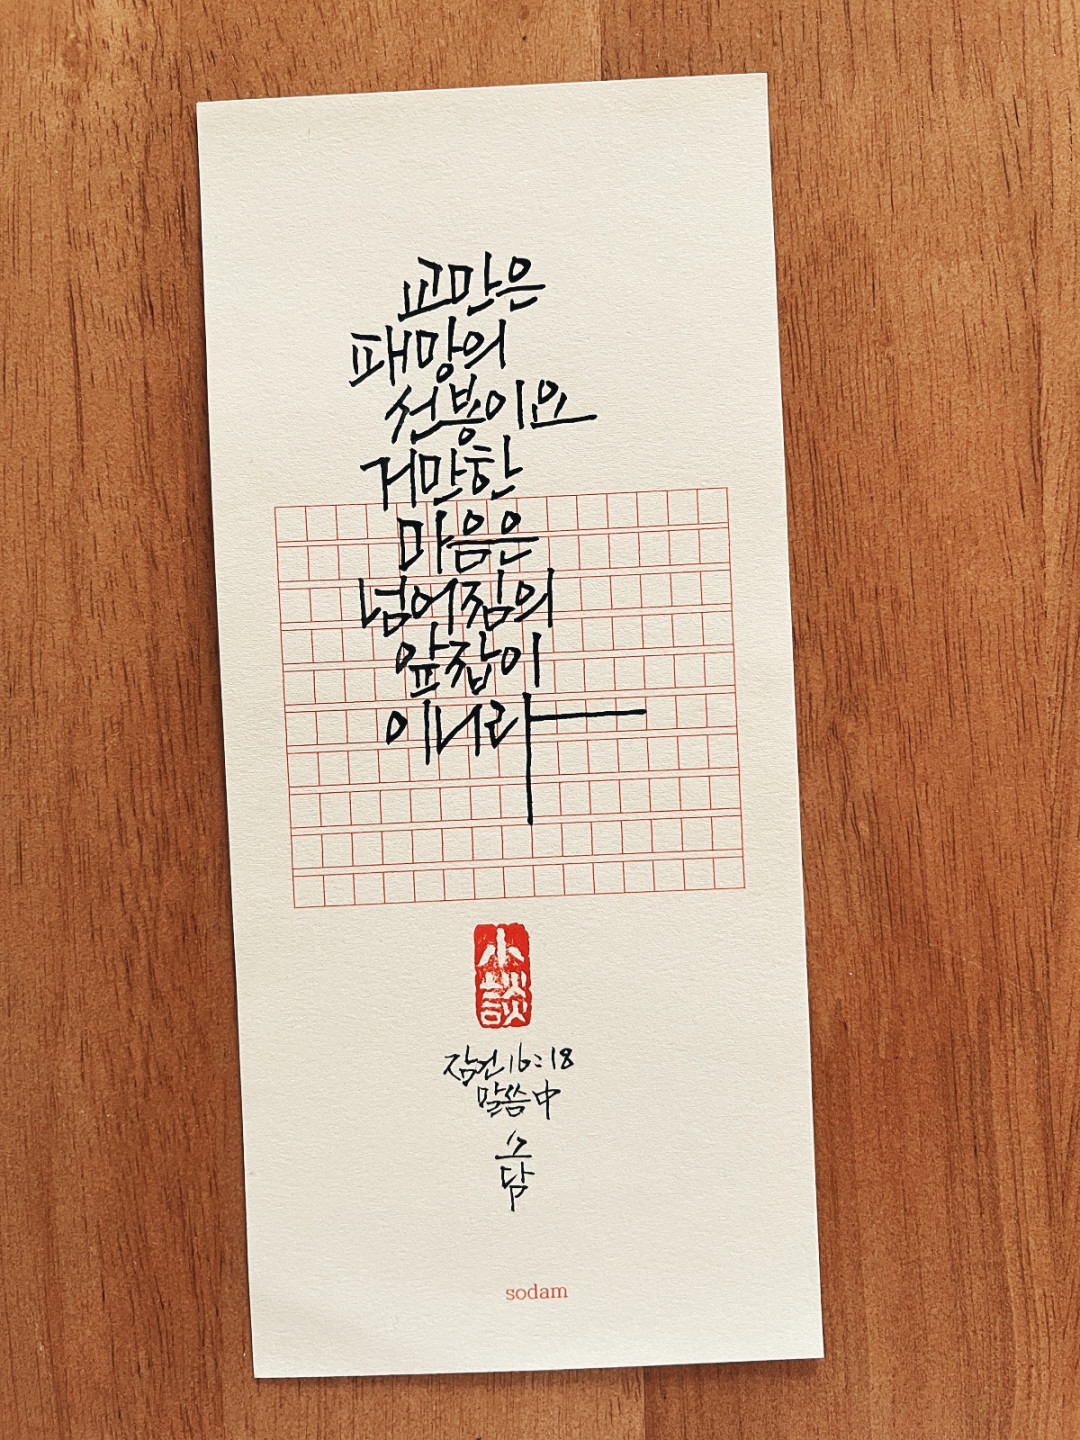 교만은
패망의
선봉이요
거만한
마음은
넘어짐의
앞잡이
이니라
小談
잠언 16:18
말씀中
소담
sodam